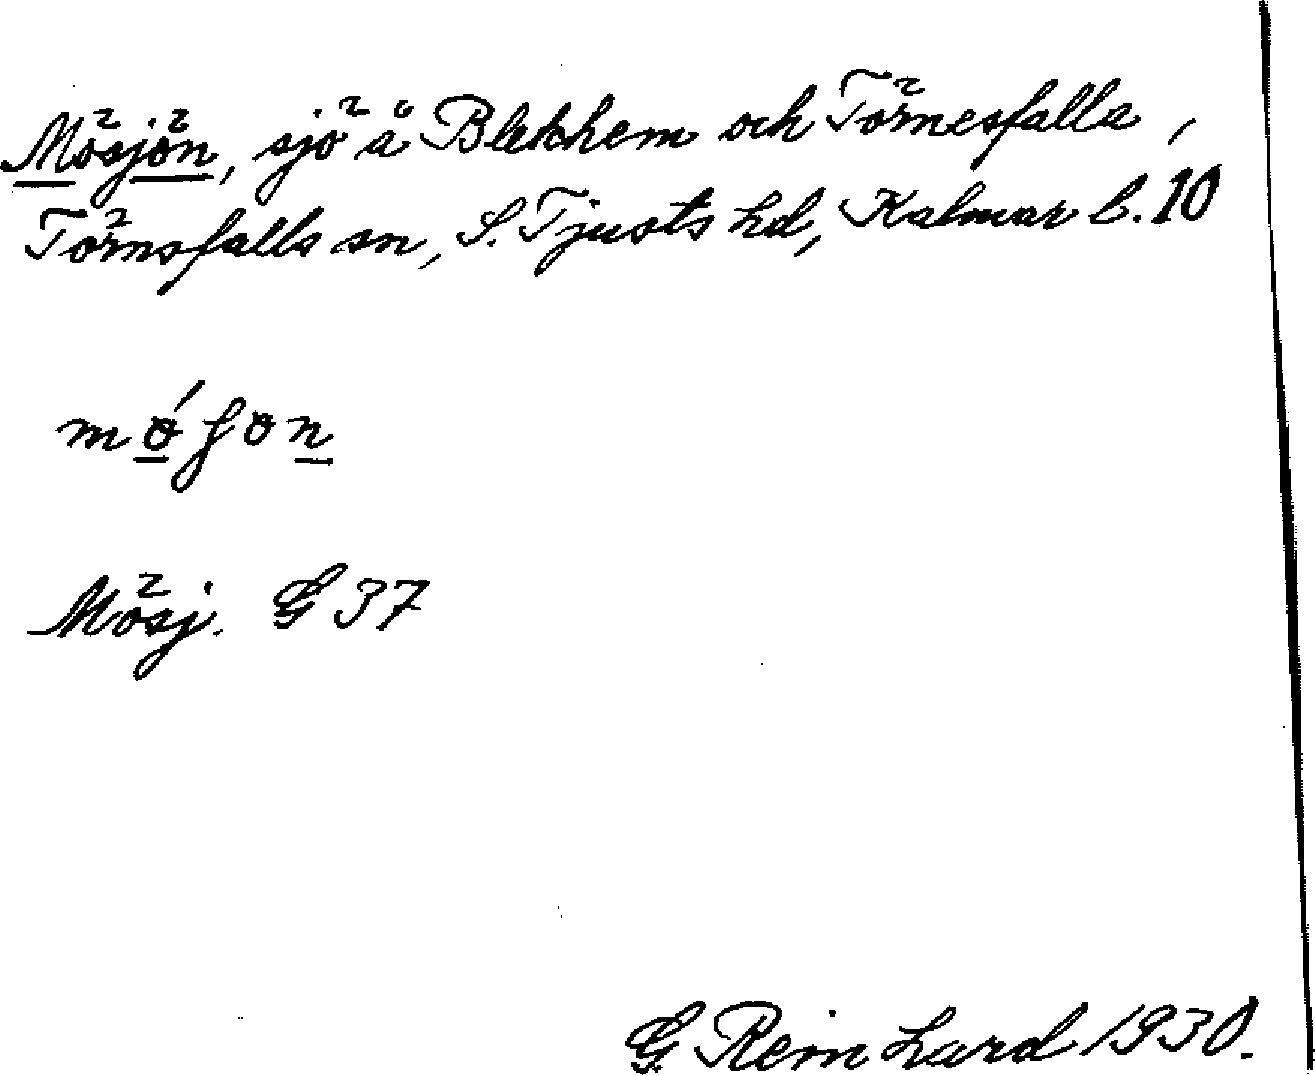 Mösjön, sjö å Blekhem och Törnesfalla,
Törnsfalls sn, S. Tjusts hd, Kalmar l. 10
Mösj. G 37
G. Reinhard 1930.